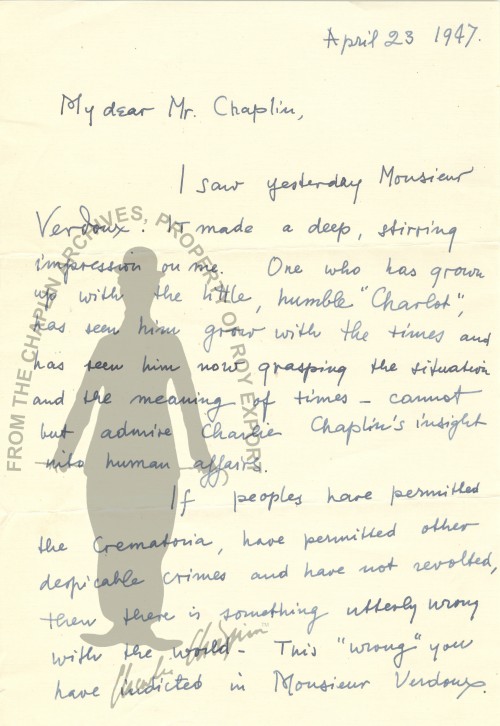 April 23 1947.
My dear Mr. Chaplin,
I saw yesterday Monsieur
Verdoux. It made a deep, stirring
impression on me. One who has grown
up with the little, humble "Charlot",
has seen him grow with the times and
has seen him now grasping the situation
and the meaning of times – cannot
but admire Charlie Chaplin's insight
into human affairs.
If peoples have permitted
the Crematoria, have permitted other
despicable crimes and have not revolted,
then there is something utterly wrong
with the world – This "wrong" you
have indicted in Monsieur Verdoux.
FROM THE CHAPLIN ARCHIVES, PROPERTY OF ROY EXPORT
Charlie Chaplin™